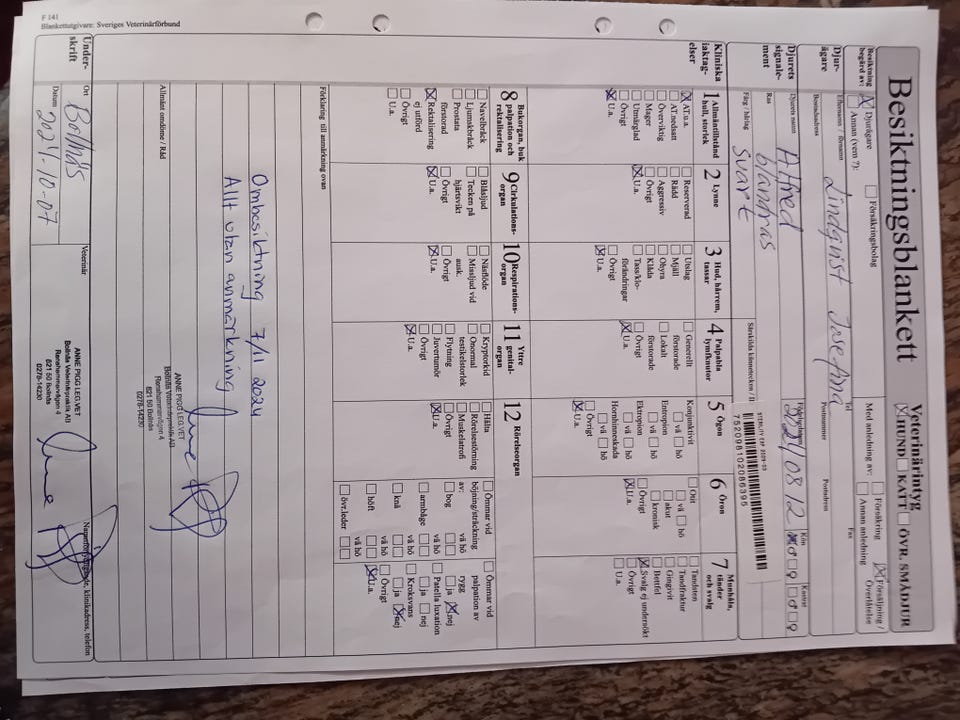 F 141
Blankettutgivare: Sveriges Veterinärförbund
Besiktningsblankett
Veterinärintyg
☒ HUND ☐ KATT ☐ ÖVR. SMÅDJUR
Besiktning begärd av:
☒ Djurägare ☐ Försäkringsbolag
☐ Annan (vem ?):
Med anledning av:
☐ Försäkring ☒ Försäljning / Överlåtelse
☐ Annan anledning
Djurägare
Efternamn / förnamn
Lindqvist Josefina
Tel
Fax
Bostadsadress
Postnummer
Postadress
Djurets signalement
Djurets namn
Alfred
Kön
☒ ♂ ☐ ♀
Kastrat
☐ ♂ ☐ ♀
Ras
blandras
Färg / hårlag
svart
STERILITY EXP 2029-03
752098102086395
Kliniska iakttagelser
1 Allmäntillstånd hull, storlek
☒ AT.u.a.
☐ AT.nedsatt
☐ Överviktig
☐ Mager
☐ Utmärglad
☐ Övrigt
☒ U.a.
2 Lynne
☐ Reserverad
☐ Rädd
☐ Aggressiv
☐ Övrigt
☒ U.a.
3 Hud, hårrem, tassar
☐ Utslag
☐ Mjäll
☐ Ohyra
☐ Klåda
☐ Tass/klo-förändringar
☐ Övrigt
☒ U.a.
4 Palpabla lymfknutor
☐ Generellt förstorade
☐ Lokalt förstorade
☐ Övrigt
☒ U.a.
5 Ögon
Konjunktivit
☐ vä ☐ hö
Entropion
☐ vä ☐ hö
Ektropion
☐ vä ☐ hö
Hornhinneskada
☐ vä ☐ hö
☐ Övrigt
☒ U.a.
6 Öron
☐ Otit
☐ vä ☐ hö
☐ akut
☐ kronisk
☐ Övrigt
☒ U.a.
7 Munhåla, tänder och svalg
☐ Tandsten
☐ Tandfraktur
☐ Gingivit
☐ Bettfel
☒ Svalg ej undersökt
☐ Övrigt
☐ U.a.
8 Bukorgan, buk palpation och rektalisering
☐ Navelbråck
☐ Ljumskbråck
☐ Prostata förstorad
☒ Rektalisering ej utförd
☐ Övrigt
☐ U.a.
9 Cirkulationsorgan
☐ Blåsljud
☐ Tecken på hjärtsvikt
☐ Övrigt
☒ U.a.
10 Respirationsorgan
☐ Näsflöde
☐ Missljud vid ausk.
☐ Övrigt
☒ U.a.
11 Yttre genitalorgan
☐ Kryptorkid
☐ Onormal testikelstorlek
☐ Flytning
☐ Juvertumör
☐ Övrigt
☒ U.a.
12 Rörelseorgan
☐ Hälta
☐ Rörelsestörning
☐ Muskelatrofi
☐ Övrigt
☒ U.a.
☐ Ömmar vid böjning/sträckning av: vä hö
bog ☐ ☐
vä hö
armbåge ☐ ☐
vä hö
knä ☐ ☐
vä hö
höft ☐ ☐
övr.leder ☐ ☐
☐ Ömmar vid palpation av rygg
☐ ja ☒ nej
Patella luxation
☐ ja ☐ nej
☐ Kroksvans
☐ ja ☒ nej
☐ Övrigt
☒ U.a.
Förklaring till anmärkning ovan
Ombesiktning 7/11 2024
Allt utan anmärkning
ANNE PIGG LEG.VET
Bollnäs Veterinärpraktik AB
Renshammarvägen 4
821 50 Bollnäs
0278-14230
Allmänt omdöme / Råd
Underskrift
Ort
Bollnäs
Datum
2024-10-07
Veterinär
ANNE PIGG LEG.VET
Bollnäs Veterinärpraktik AB
Renshammarvägen 4
821 50 Bollnäs
0278-14230
Namnförtydligande, klinikadress, telefon